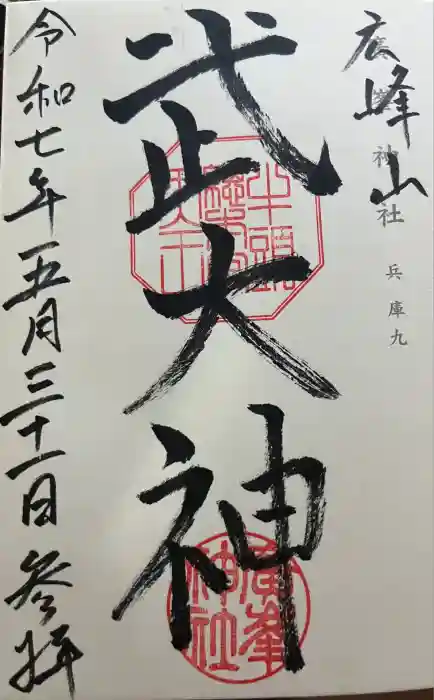 広峰山
神社 兵庫九
武大神
令和七年五月三十一日参拝
廣峯神社